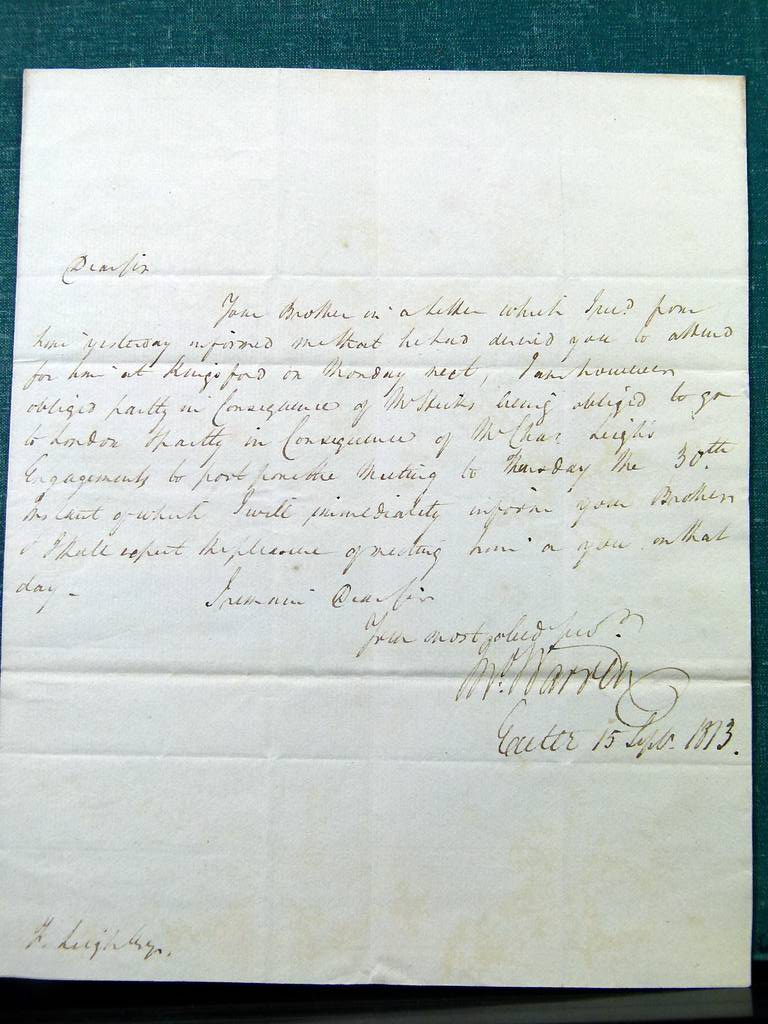 Dear Sir
Your Brother in a Letter which I recd from
him yesterday informed me that he had desired you to attend
for him at Kingsford on Monday next, I am however
obliged partly in Consequence of Mr being obliged to go
to London & partly in Consequence of Mr Chas Leigh's
Engagements to postpone the Meeting to Thursday the 30th
Instant of which I will immediately inform your Brother
& I shall expect the pleasure of meeting him or you on that
day -
I remain Dear Sir
Your most obed Servt
Warren
Exeter 15 Septr 1813.
Leigh Esqr.